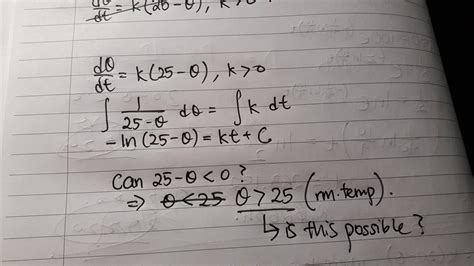 dθ/dt = k(25-θ), k>0
dθ/dt = k(25-θ), k>0
∫ 1/(25-θ) dθ = ∫ k dt
-ln(25-θ) = kt + C
Can 25-θ<0 ?
⇒ θ<25 θ>25 (rm.temp).
↳ is this possible?